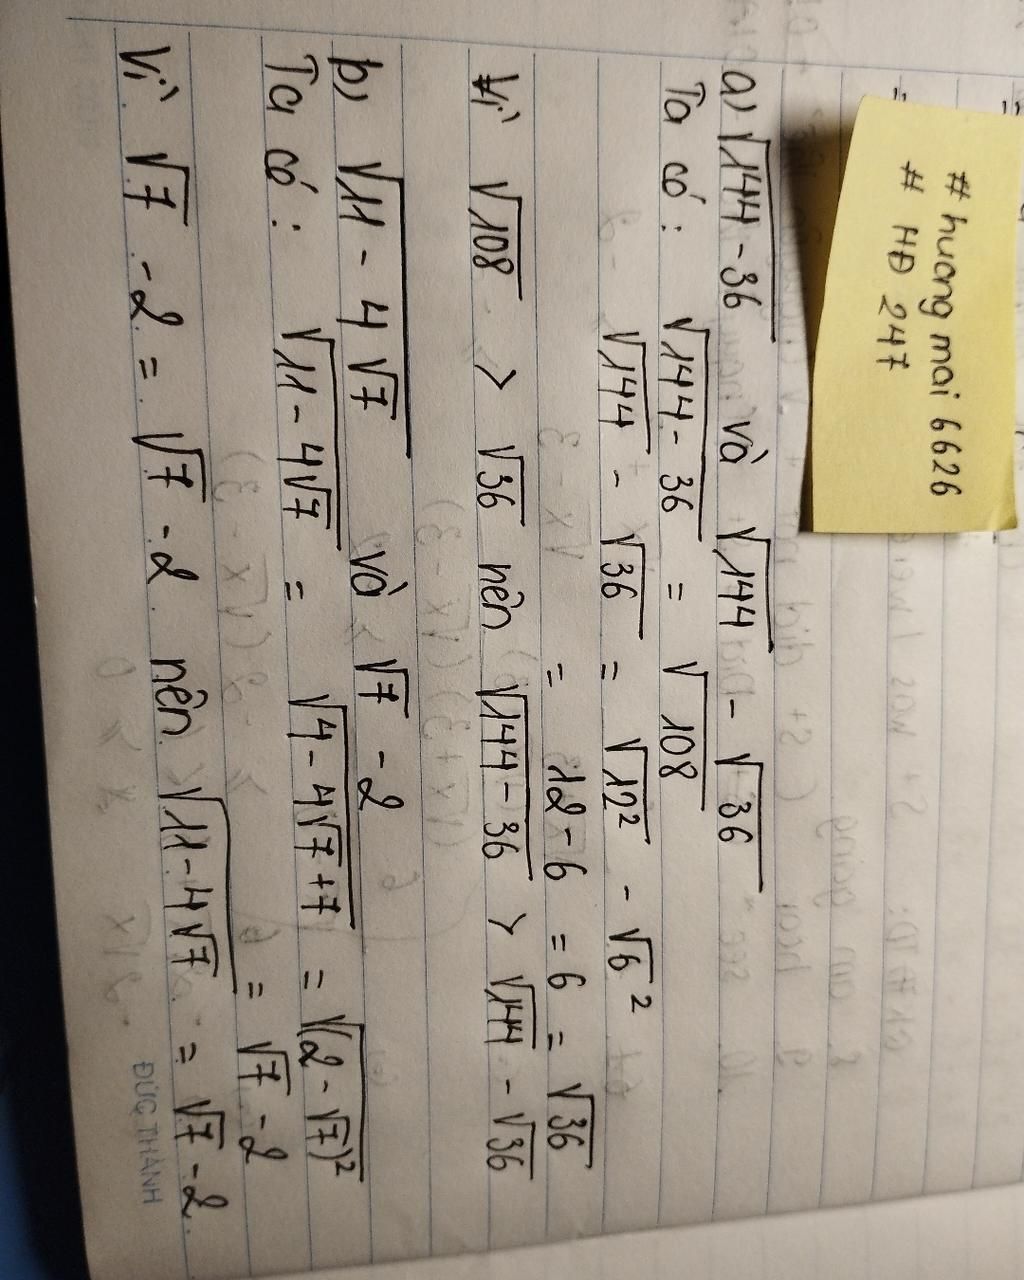 # huong mai 6626
# HĐ 247
a) √144 - 36 và √144 - √36
Ta có: √144 - 36 = √108
√144 - √36 = √12² - √6²
= 12 - 6 = 6 = √36
Vì √108 > √36 nên √144 - 36 > √144 - √36
b) √11 - 4√7 và √7 - 2
Ta có: √11 - 4√7 = √4 - 4√7 + 7 = √(2 - √7)²
= √7 - 2
Vì √7 - 2 = √7 - 2 nên √11 - 4√7 = √7 - 2
ĐỨC THÀNH